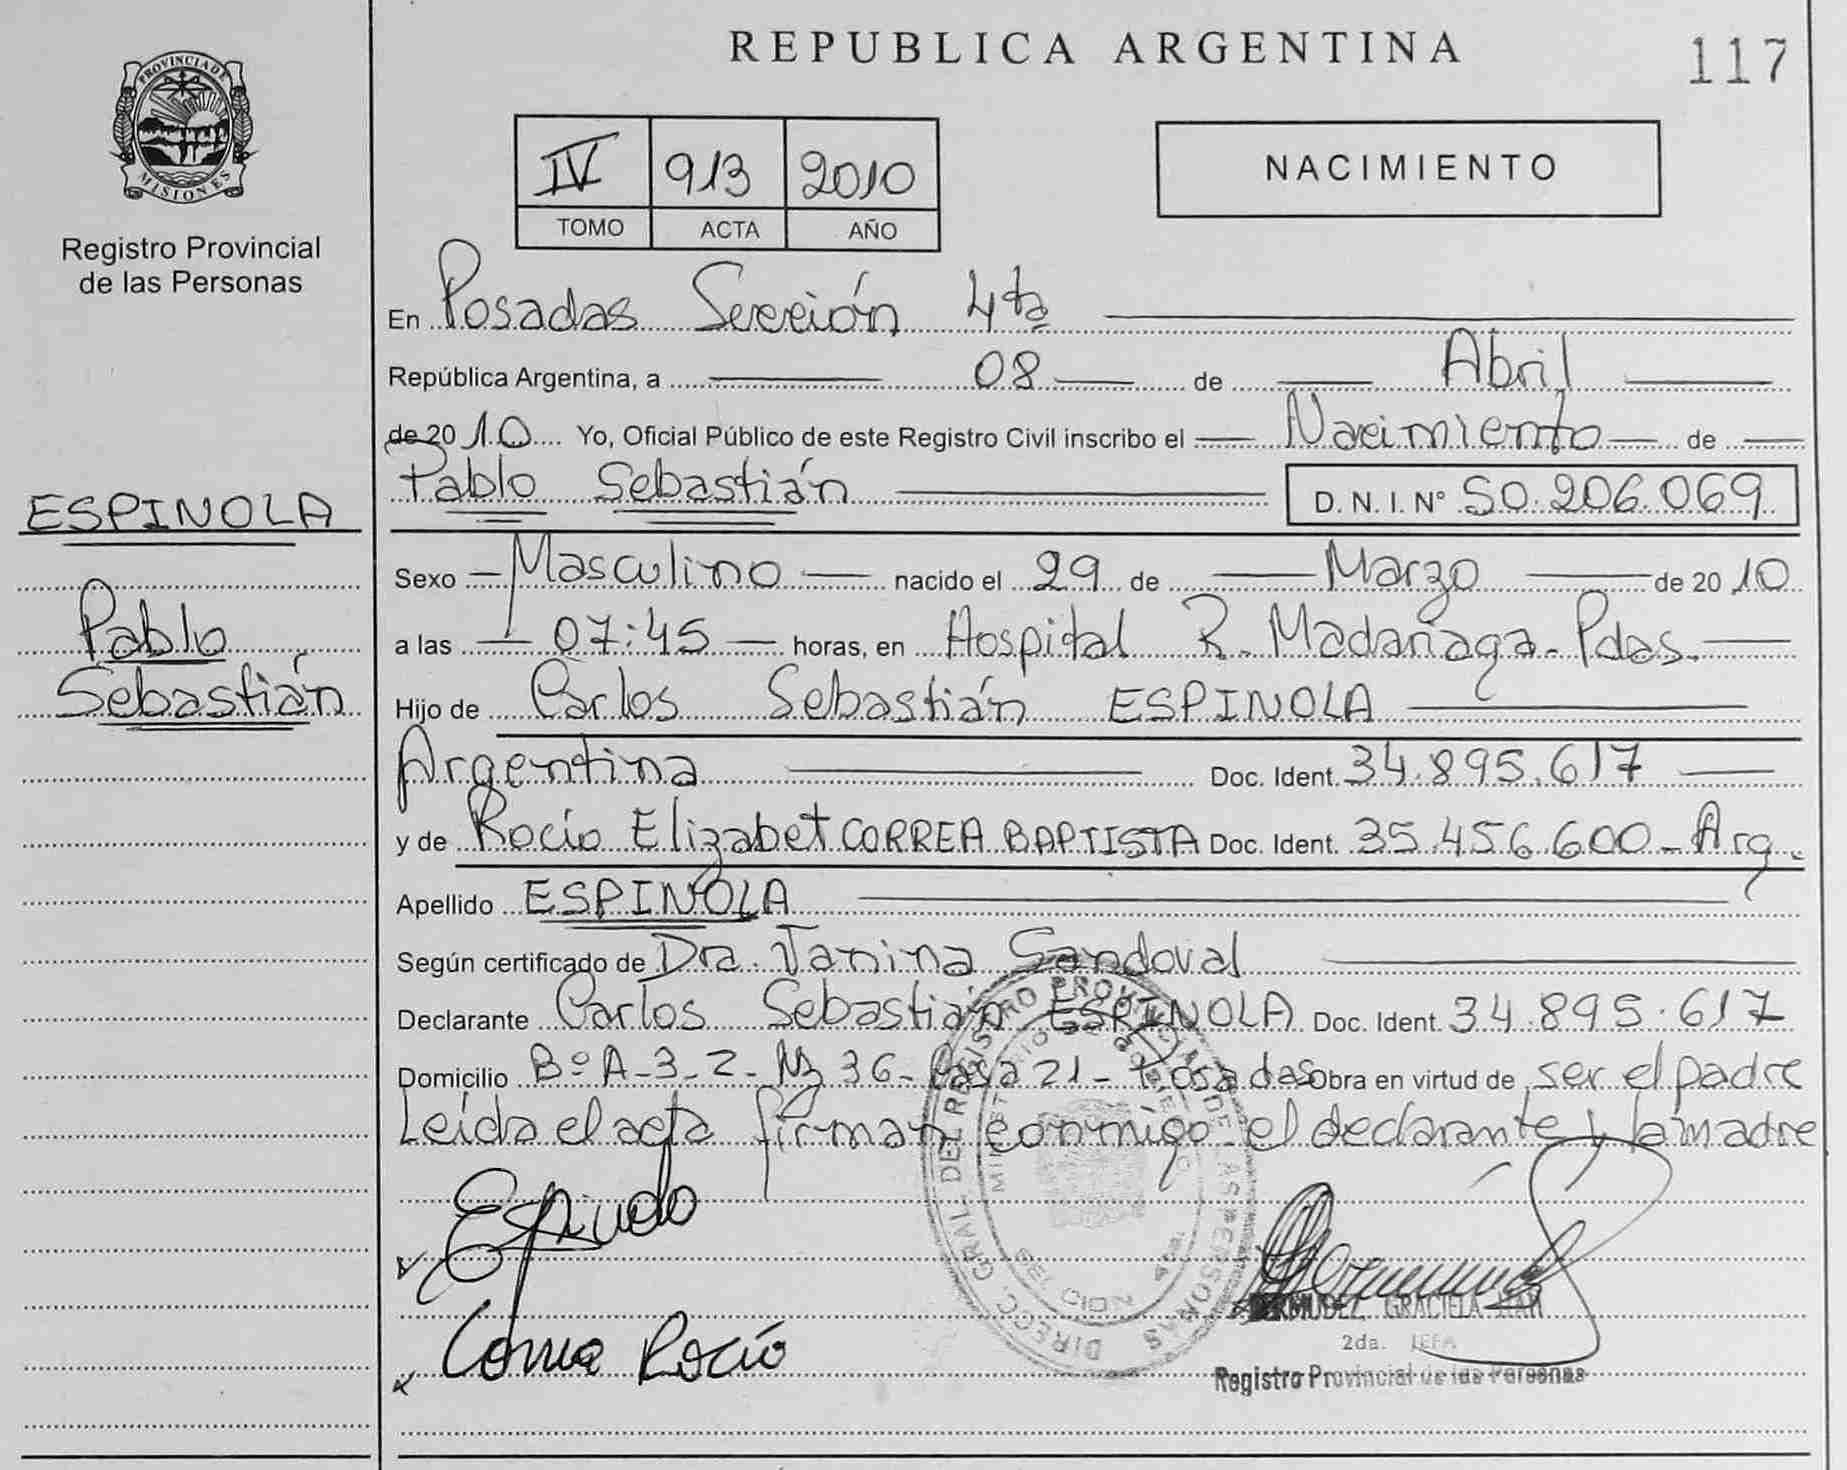 REPUBLICA ARGENTINA
117
PROVINCIA DE
MISIONES
Registro Provincial
de las Personas
IV 913 2010
TOMO ACTA AÑO
NACIMIENTO
En Posadas Sección 4ta
República Argentina, a 08 de Abril
de 2010 Yo, Oficial Público de este Registro Civil inscribo el Nacimiento de
Pablo Sebastián D. N. I. Nº 50.206.069
ESPINOLA
Pablo
Sebastián
Sexo Masculino nacido el 29 de Marzo de 2010
a las 07:45 horas, en Hospital R. Madariaga-Pdas.
Hijo de Carlos Sebastián ESPINOLA
Argentina Doc. Ident. 34.895.617
y de Rocío Elizabet CORREA BAPTISTA Doc. Ident. 35.456.600-Arg.
Apellido ESPINOLA
Según certificado de Dra. Janina Sandoval
Declarante Carlos Sebastián ESPINOLA Doc. Ident. 34.895.617
Domicilio Bº A-3-2- Mz 36- Casa 21- Posadas Obra en virtud de ser el padre
Leída el acta firman conmigo el declarante y la madre
Correa Rocío
DIREC. GRAL. DEL REGISTRO PROVINCIAL DE LAS PERSONAS
MINISTERIO DE GOBIERNO
SECCION 4ta.
BERMUDEZ GRACIELA
2da. JEFA
Registro Provincial de las Personas